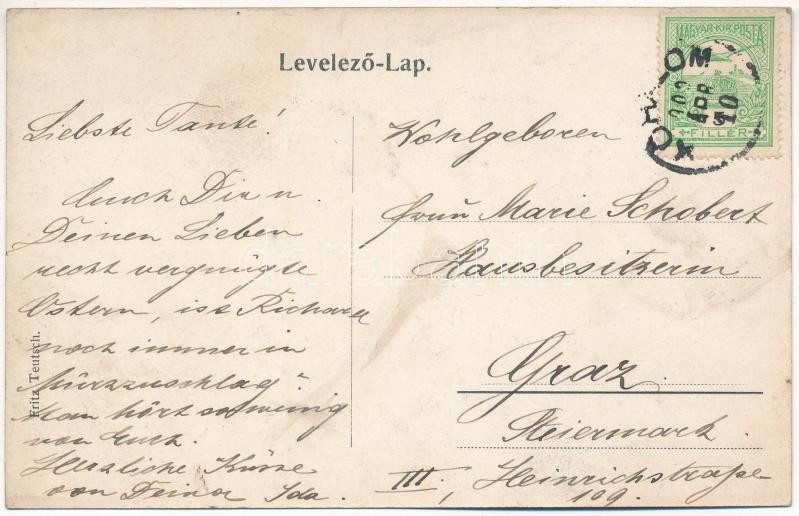 Levelező-Lap.
MAGYAR·KIR·POSTA
FILLÉR
APR
10
Liebste Tante!
Auch Dir u.
Deinen Lieben
recht vergnügte
Ostern, ist Richard
noch immer in
Mürzzuschlag?
Man hört so wenig
von Euch.
Herzliche Küsse
von Deiner Ida.
Wohlgeboren
Frau Marie Schobert
Hausbesitzerin
Graz
Steiermark.
III., Heinrichstraße
109.
Fritz Teutsch.
darabanth